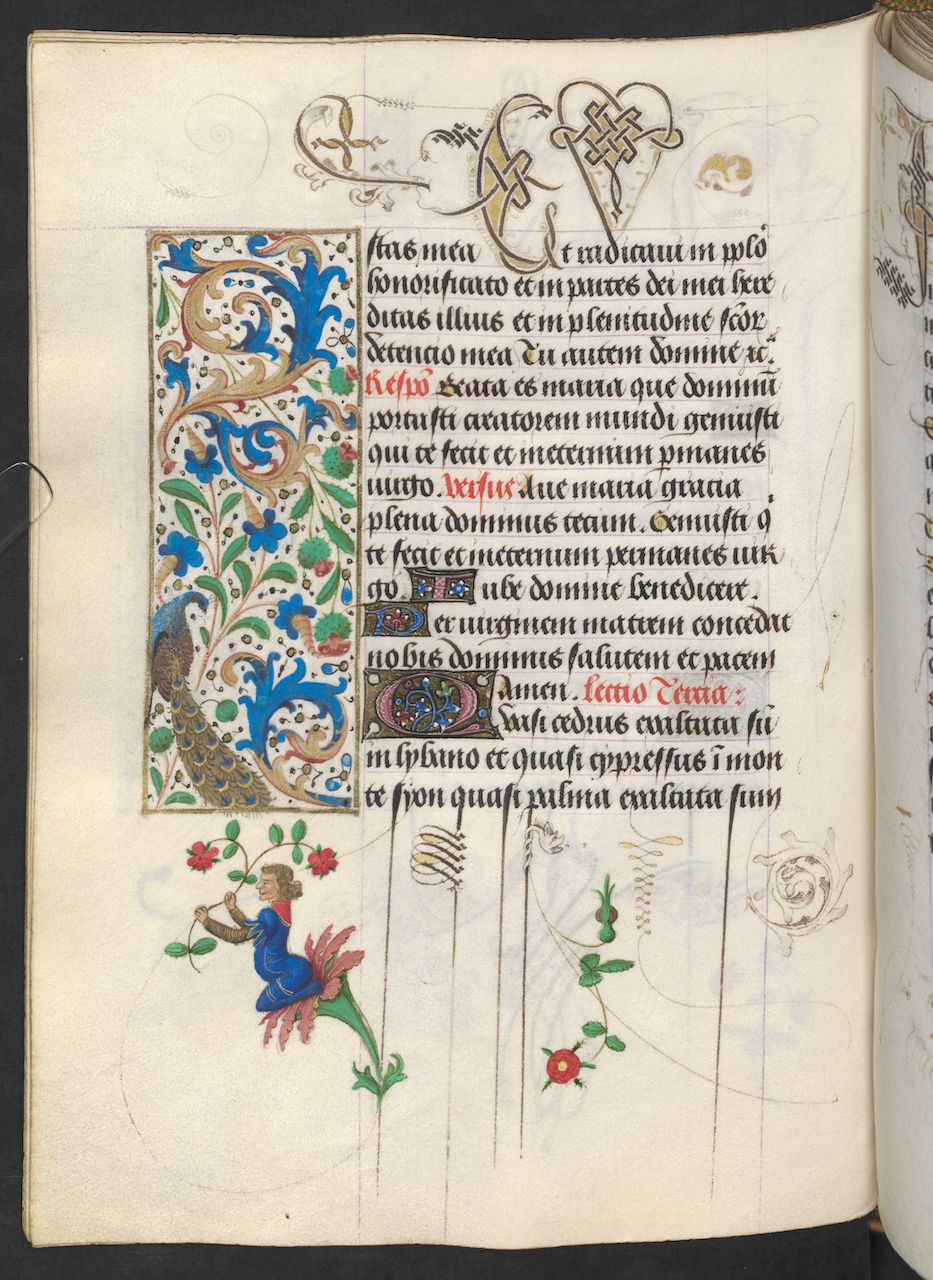 stas mea Et radicaui in pplō
honorificato et in partes dei mei here
ditas illius et in plenitudine scōr
detencio mea Tu autem domine ꝛc̄.
Respō Beata es maria que dominū
portasti creatorem mundi genuisti
qui te fecit et ineternum ꝑmanes
uirgo. Versus Aue maria gracia
plena dominus tecum. Genuisti q
te fecit et ineternum permanes uir
go. Iube domine benedicere.
Per uirginem matrem concedat
nobis dominus salutem et pacem
Amen. lectio Tercia:
Quasi cedrus exaltata sū
in lybano et quasi cypressus ī mon
te syon quasi palma exaltata sum